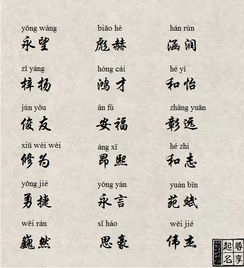 yǒng wàng biāo hè hán rùn
永望 彪赫 涵润
zǐ yáng hóng cái hé yí
梓扬 鸿才 和怡
jùn yǒu ān fú zhāng yuǎn
俊友 安福 彰远
xiū wéi wèi áng xī hé zhì
修为 昂熙 和志
yǒng jié yǒng yán yuàn bīn
勇捷 永言 苑斌
wēi rán sī háo wěi jié
巍然 思豪 伟杰
起名